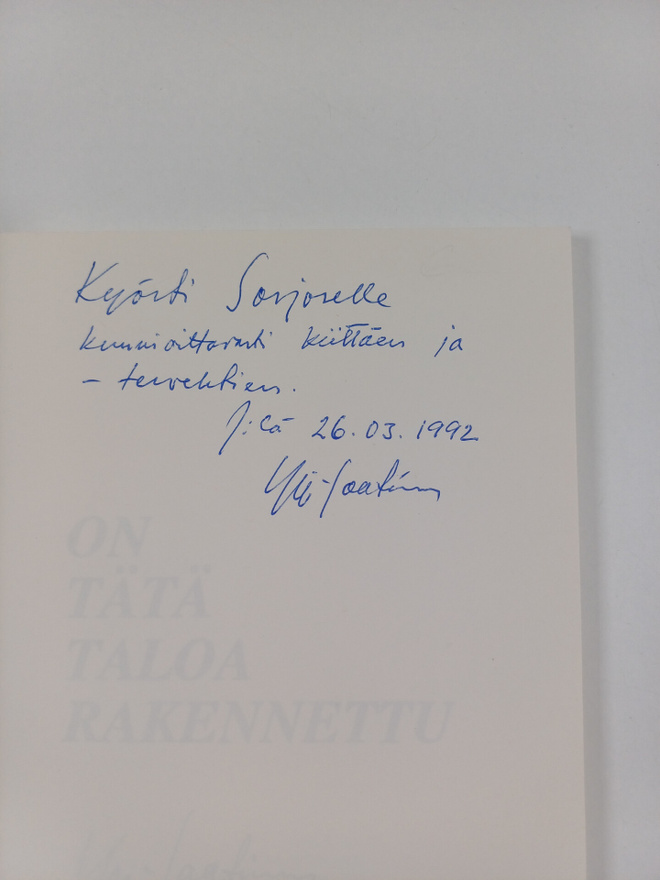 Kyösti Sorjoselle
kunnioittavasti kiittäen ja
– tervehtien.
J:lä 26.03.1992
ON
TÄTÄ
TALOA
RAKENNETTU